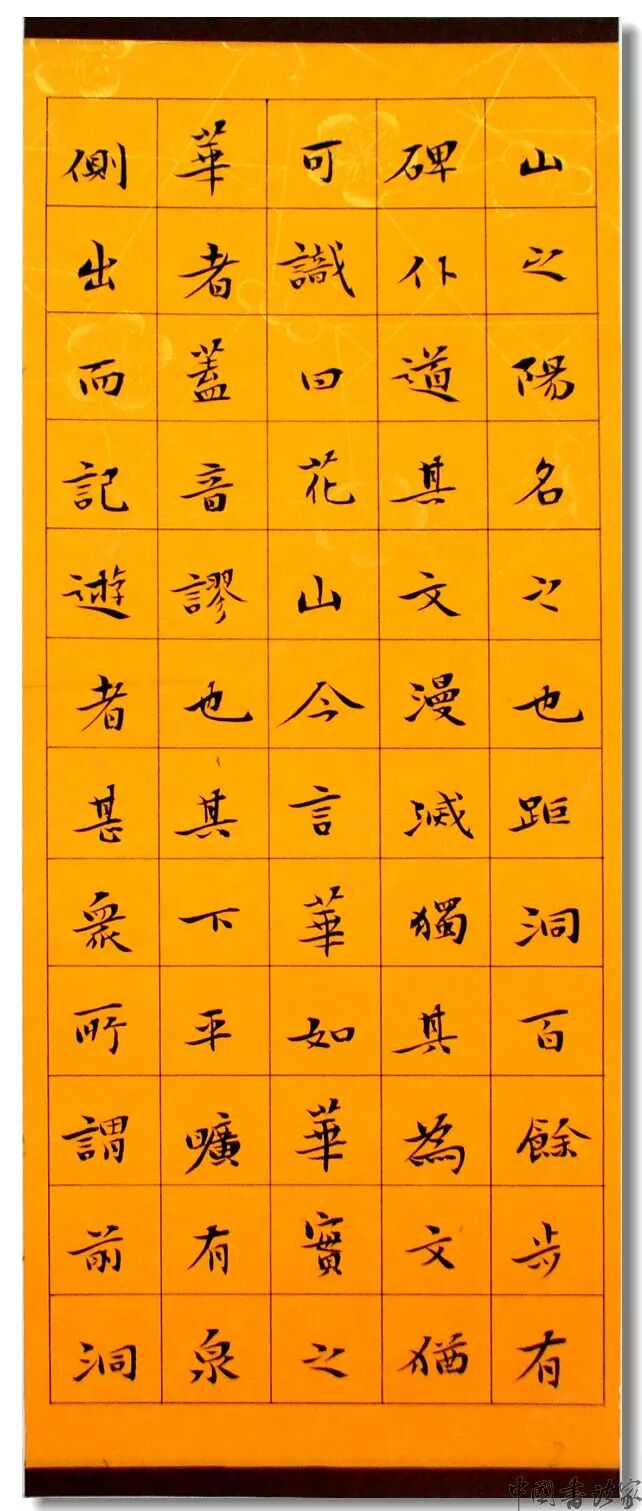 山之陽名之也距洞百餘步有
碑仆道其文漫滅獨其為文猶
可識曰花山今言華如華實之
華者蓋音謬也其下平曠有泉
側出而記遊者甚衆所謂前洞
中國書法家